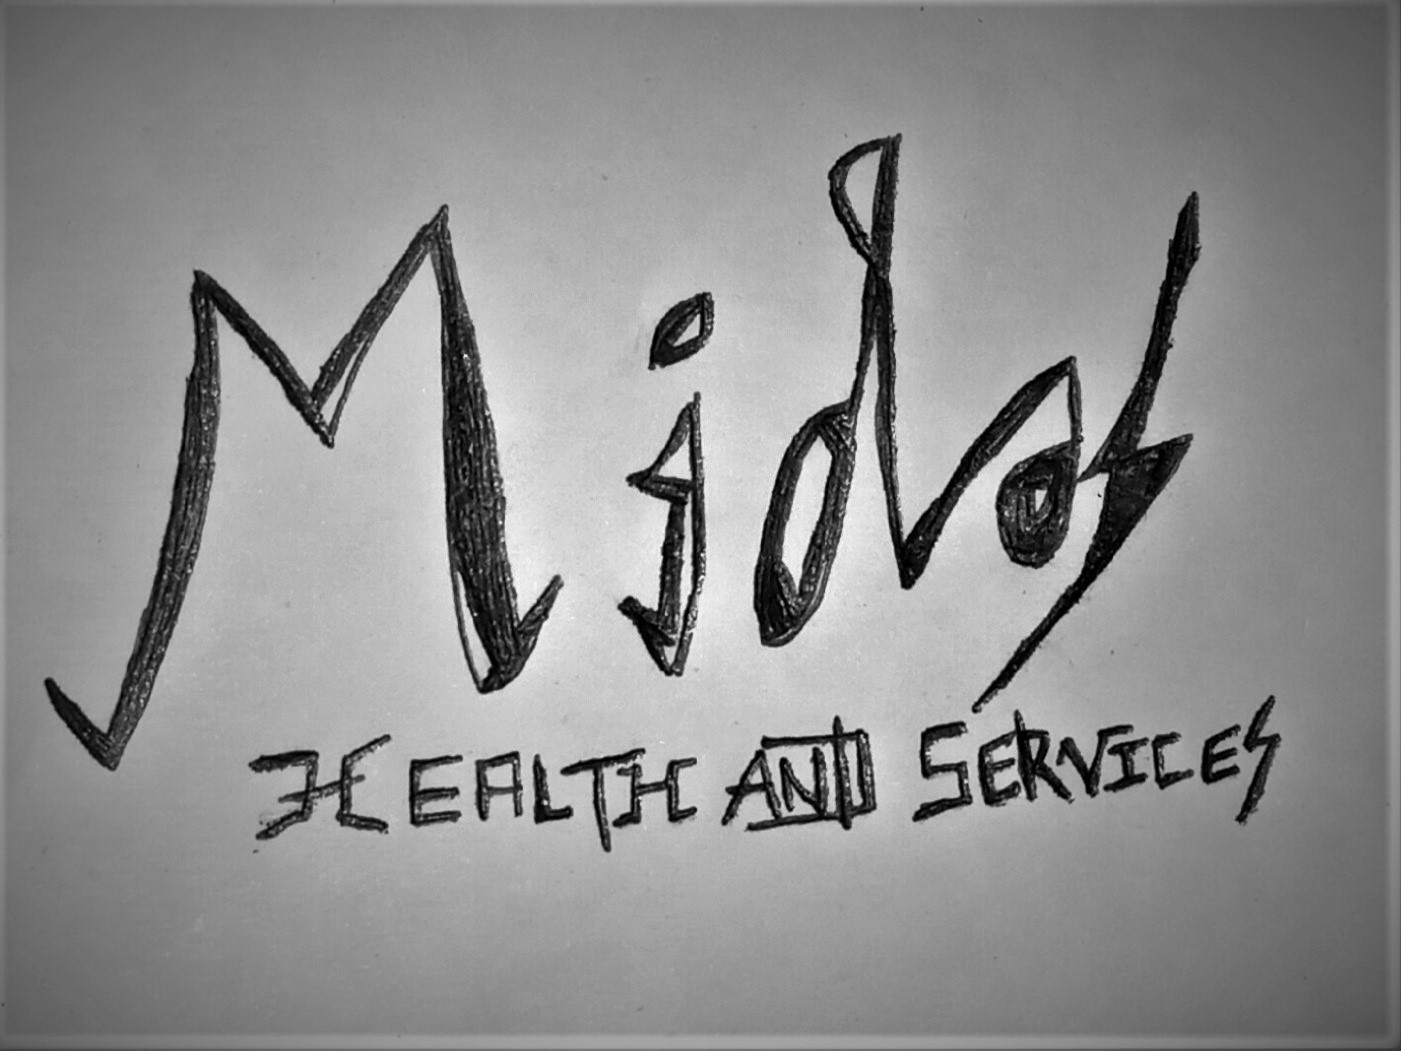 Midas
HEALTH AND SERVICES